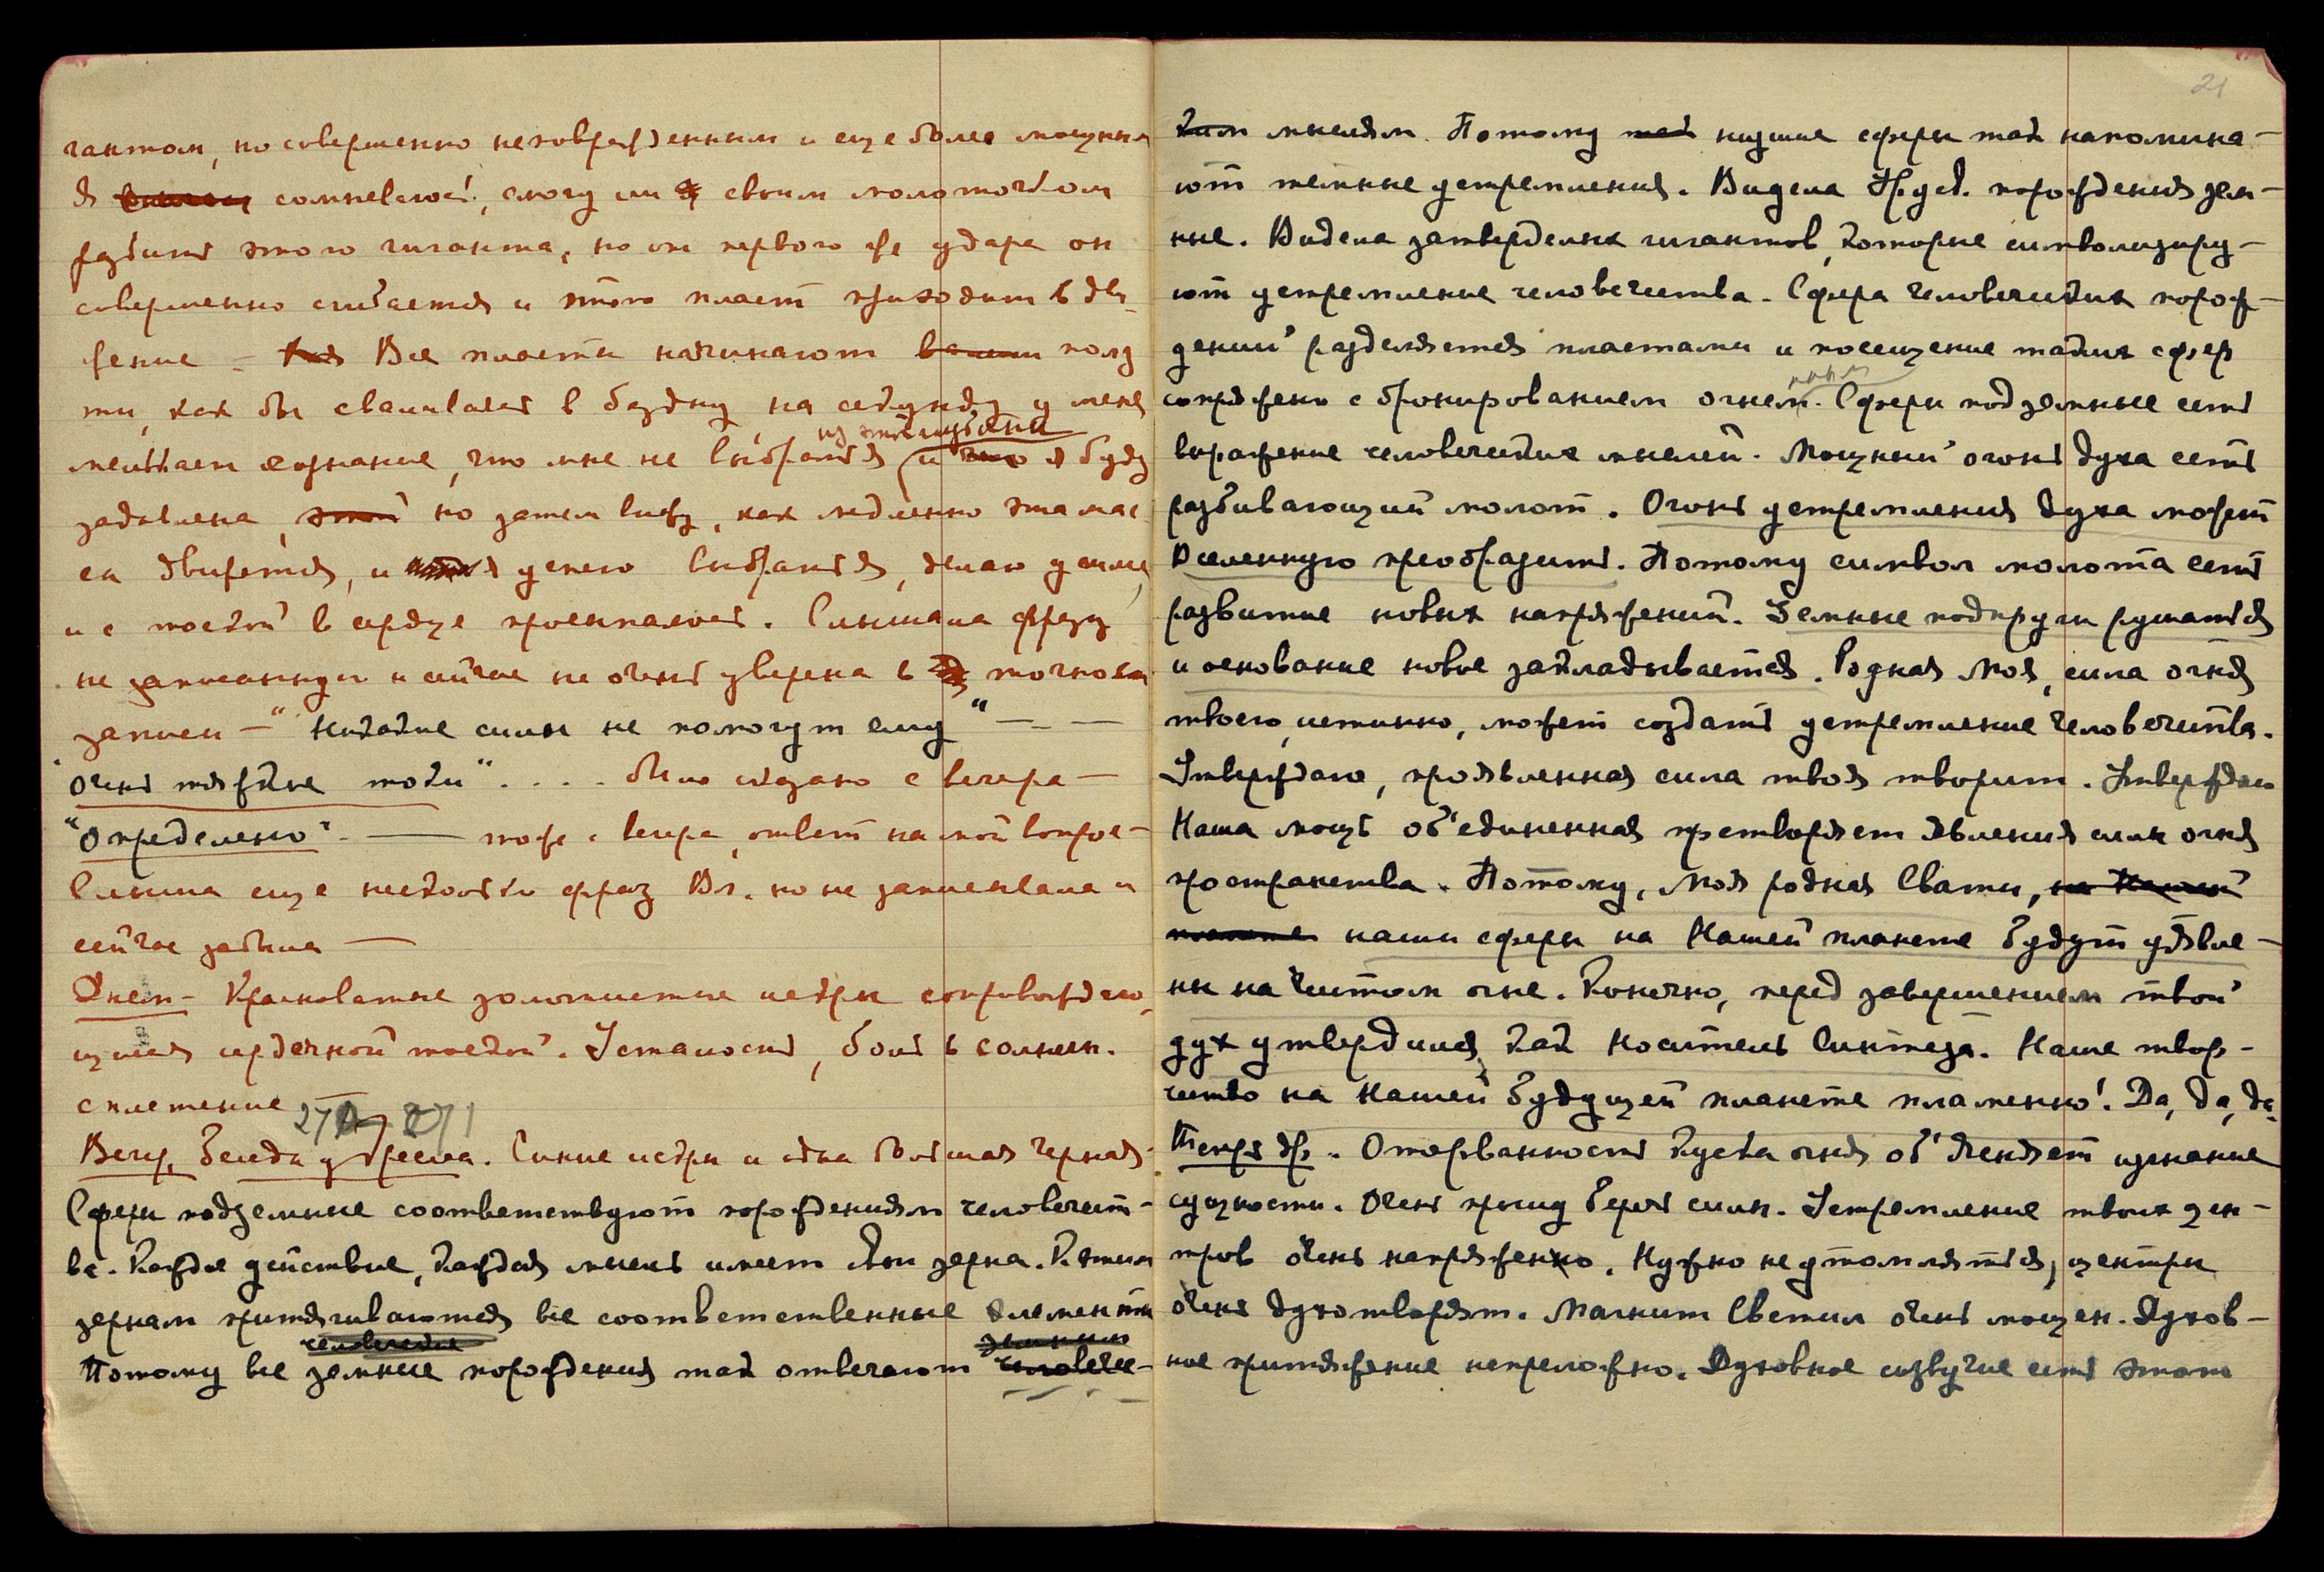 гантом, но совершенно неповрежденным и еще более мощным
Я сомневаюсь, смогу ли я своим молоточком
разбить этого гиганта, но от первого же удара он
совершенно сгибается и этого пласт приходит в дви-
жение – Все пласты начинают полз
ти, как бы сваливаясь в бездну, на секунду у меня
мелькает сознание, что мне не выбраться из этой глубины и я буду
задавлена, но затем вижу, как медленно эта мас
са движется, и успею выбраться, делаю усилие
и с тоской в сердце просыпаюсь. Слышала фразу
не записанную и сейчас не очень уверена в точности
записи – "Никакие силы не помогут ему" – –
"очень тяжкие токи" . . . . было сказано с вечера –
"Определено". — тоже с вечера, ответ на мой вопрос –
Слышала еще несколько фраз Вл. но не записывала и
сейчас забыла —
Днем – Красноватые золотистые искры сопровождаю,
щиеся сердечной тоской. Усталость, боль в солнечн.
сплетение —
27/1
Вечер. Беседа у кресла. Синие искры и одна большая черная.
Сферы подземные соответствуют порождениям человечест-
ва. Каждое действие, каждая мысль имеет свои зерна. К этим
зернам притягиваются все соответственные элементы
человеческие земным
Потому все земные порождения так отвечают человече-
21
ким мыслям. Потому так низшие сферы так напомина-
ют темные устремления. Видела Ур. уже порождения зем-
ные. Видела затверделых гигантов, которые символизиру-
ют устремление человечества. Сфера человеческих порож-
дений разделяется пластами и посещение таких сфер
сопряжено с бронированием огнем. Сферы подземные есть
выражение человеческих мыслей. Мощный огонь духа есть
разбивающий молот. Огонь устремления духа может
Вселенную преобразить. Потому символ молота есть
развитие новых напряжений. Земные подпруги рушатся
и основание новое закладывается. Родная Моя, сила огня
твоего, истинно, может создать устремление человечества.
Утверждаю, проявленная сила твоя творит. Утверждаю
Наша мощь об'единенная претворяет явления силы огня
пространства. Потому, Моя родная Свати, на Нашей
планете наши сферы на Нашей планете будут уявле-
ны на чистом огне. Конечно, перед завершением твой
дух утвердился, как Носитель Синтеза. Наше твор-
чество на Нашей будущей планете пламенно! Да, да, да.
Теперь др. Оторванность Куска огня об'ясняет изгнание
сущности. Очень прошу беречь силы. Устремление твоих цен-
тров очень напряженно. Нужно не утомляться, центры
очень духотворят. Магнит Светил очень мощен. Духов-
ное притяжение непреложно. Духовное созвучие есть этот